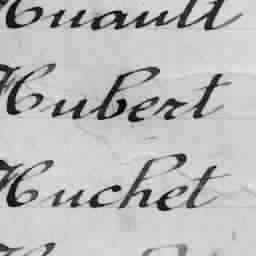 Huault
Hubert
Huchet